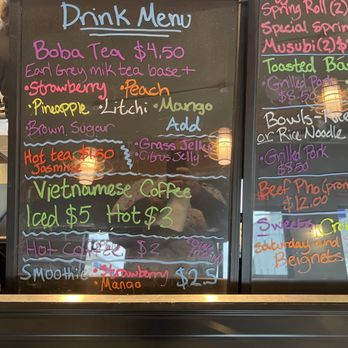 Drink Menu
Boba Tea $4.50
Earl Grey milk tea base +
• Strawberry • Peach
• Pineapple • Litchi • Mango
Brown Sugar
Add
• Grass Jelly
• Citrus Jelly
Hot tea $1.50
Jasmine
Vietnamese Coffee
Iced $5 Hot $3
Hot Coffee $2
Smoothie • Strawberry
• Mango
$2.5
Spring Roll (2)
Special Spring
Musubi (2) $
Toasted Ba
• Grilled Pork
Bowls - Rice
or Rice Noodle
• Grilled Pork
$8.50
Beef Pho
$12.00
Sweets
Saturday and
Beignets